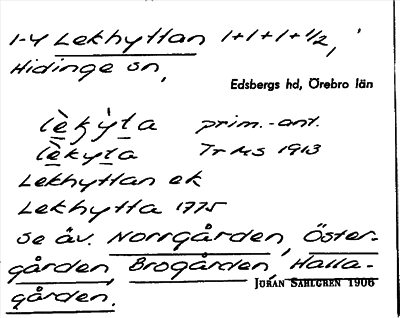 1-4 Lekhyttan 1+1+1+1/2,
Hidinge sn,
Edsbergs hd, Örebro län
lèkỳta prim.-ant.
lèkyta TrMS 1913
Lekhyttan ek
Lekhytta 1775
se äv. Norrgården, Öster-
gården, Brogården, Halla-
gården.
JÖRAN SAHLGREN 1906